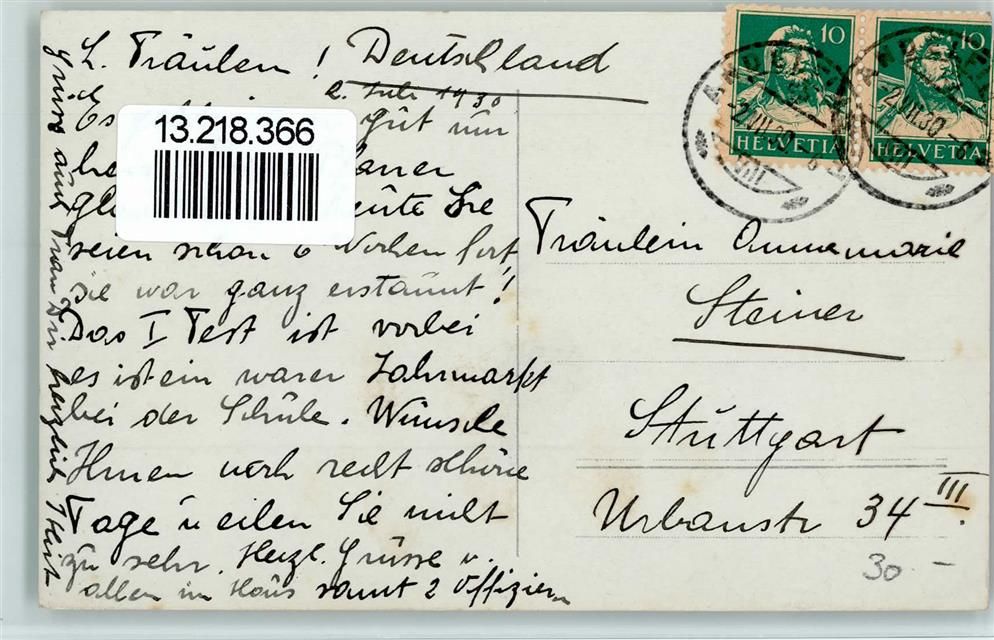 L. Fräulen! Deutschland
2. Juli 1930
Es gut nur
13.218.366
heute Sie
seien schon 6 Wochen fort,
sie war ganz erstaunt!
Das I Fest ist vorbei
es ist ein warer Jahrmarkt
bei der Schule. Wünsche
Ihnen noch recht schöne
Tage u eilen Sie nicht
zu sehr. Herzl. Grüsse u.
allen im Haus samt 2 Offizieren
Grüsse auch Frau Dir herzlich
10 10
HELVETIA HELVETIA
2.VII.30
Fräulein Annemarie
Steiner
Stuttgart
Urbanstr 34 III.
30.-